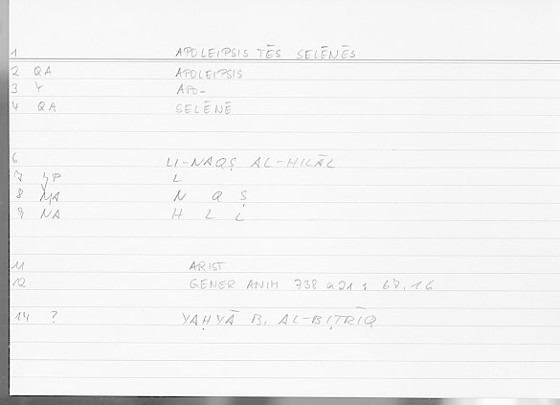 1 APOLEIPSIS TĒS SELĒNĒS
2 QA APOLEIPSIS
3 Y APO-
4 QA SELĒNĒ
6 LI-NAQṢ AL-HILĀL
7 L
8 NA N Q Ṣ
9 NA H L L
11 ARIST
12 GENER ANIM 738 a21 ; 67.16
14 ? YAḤYĀ B. AL-BIṬRĪQ